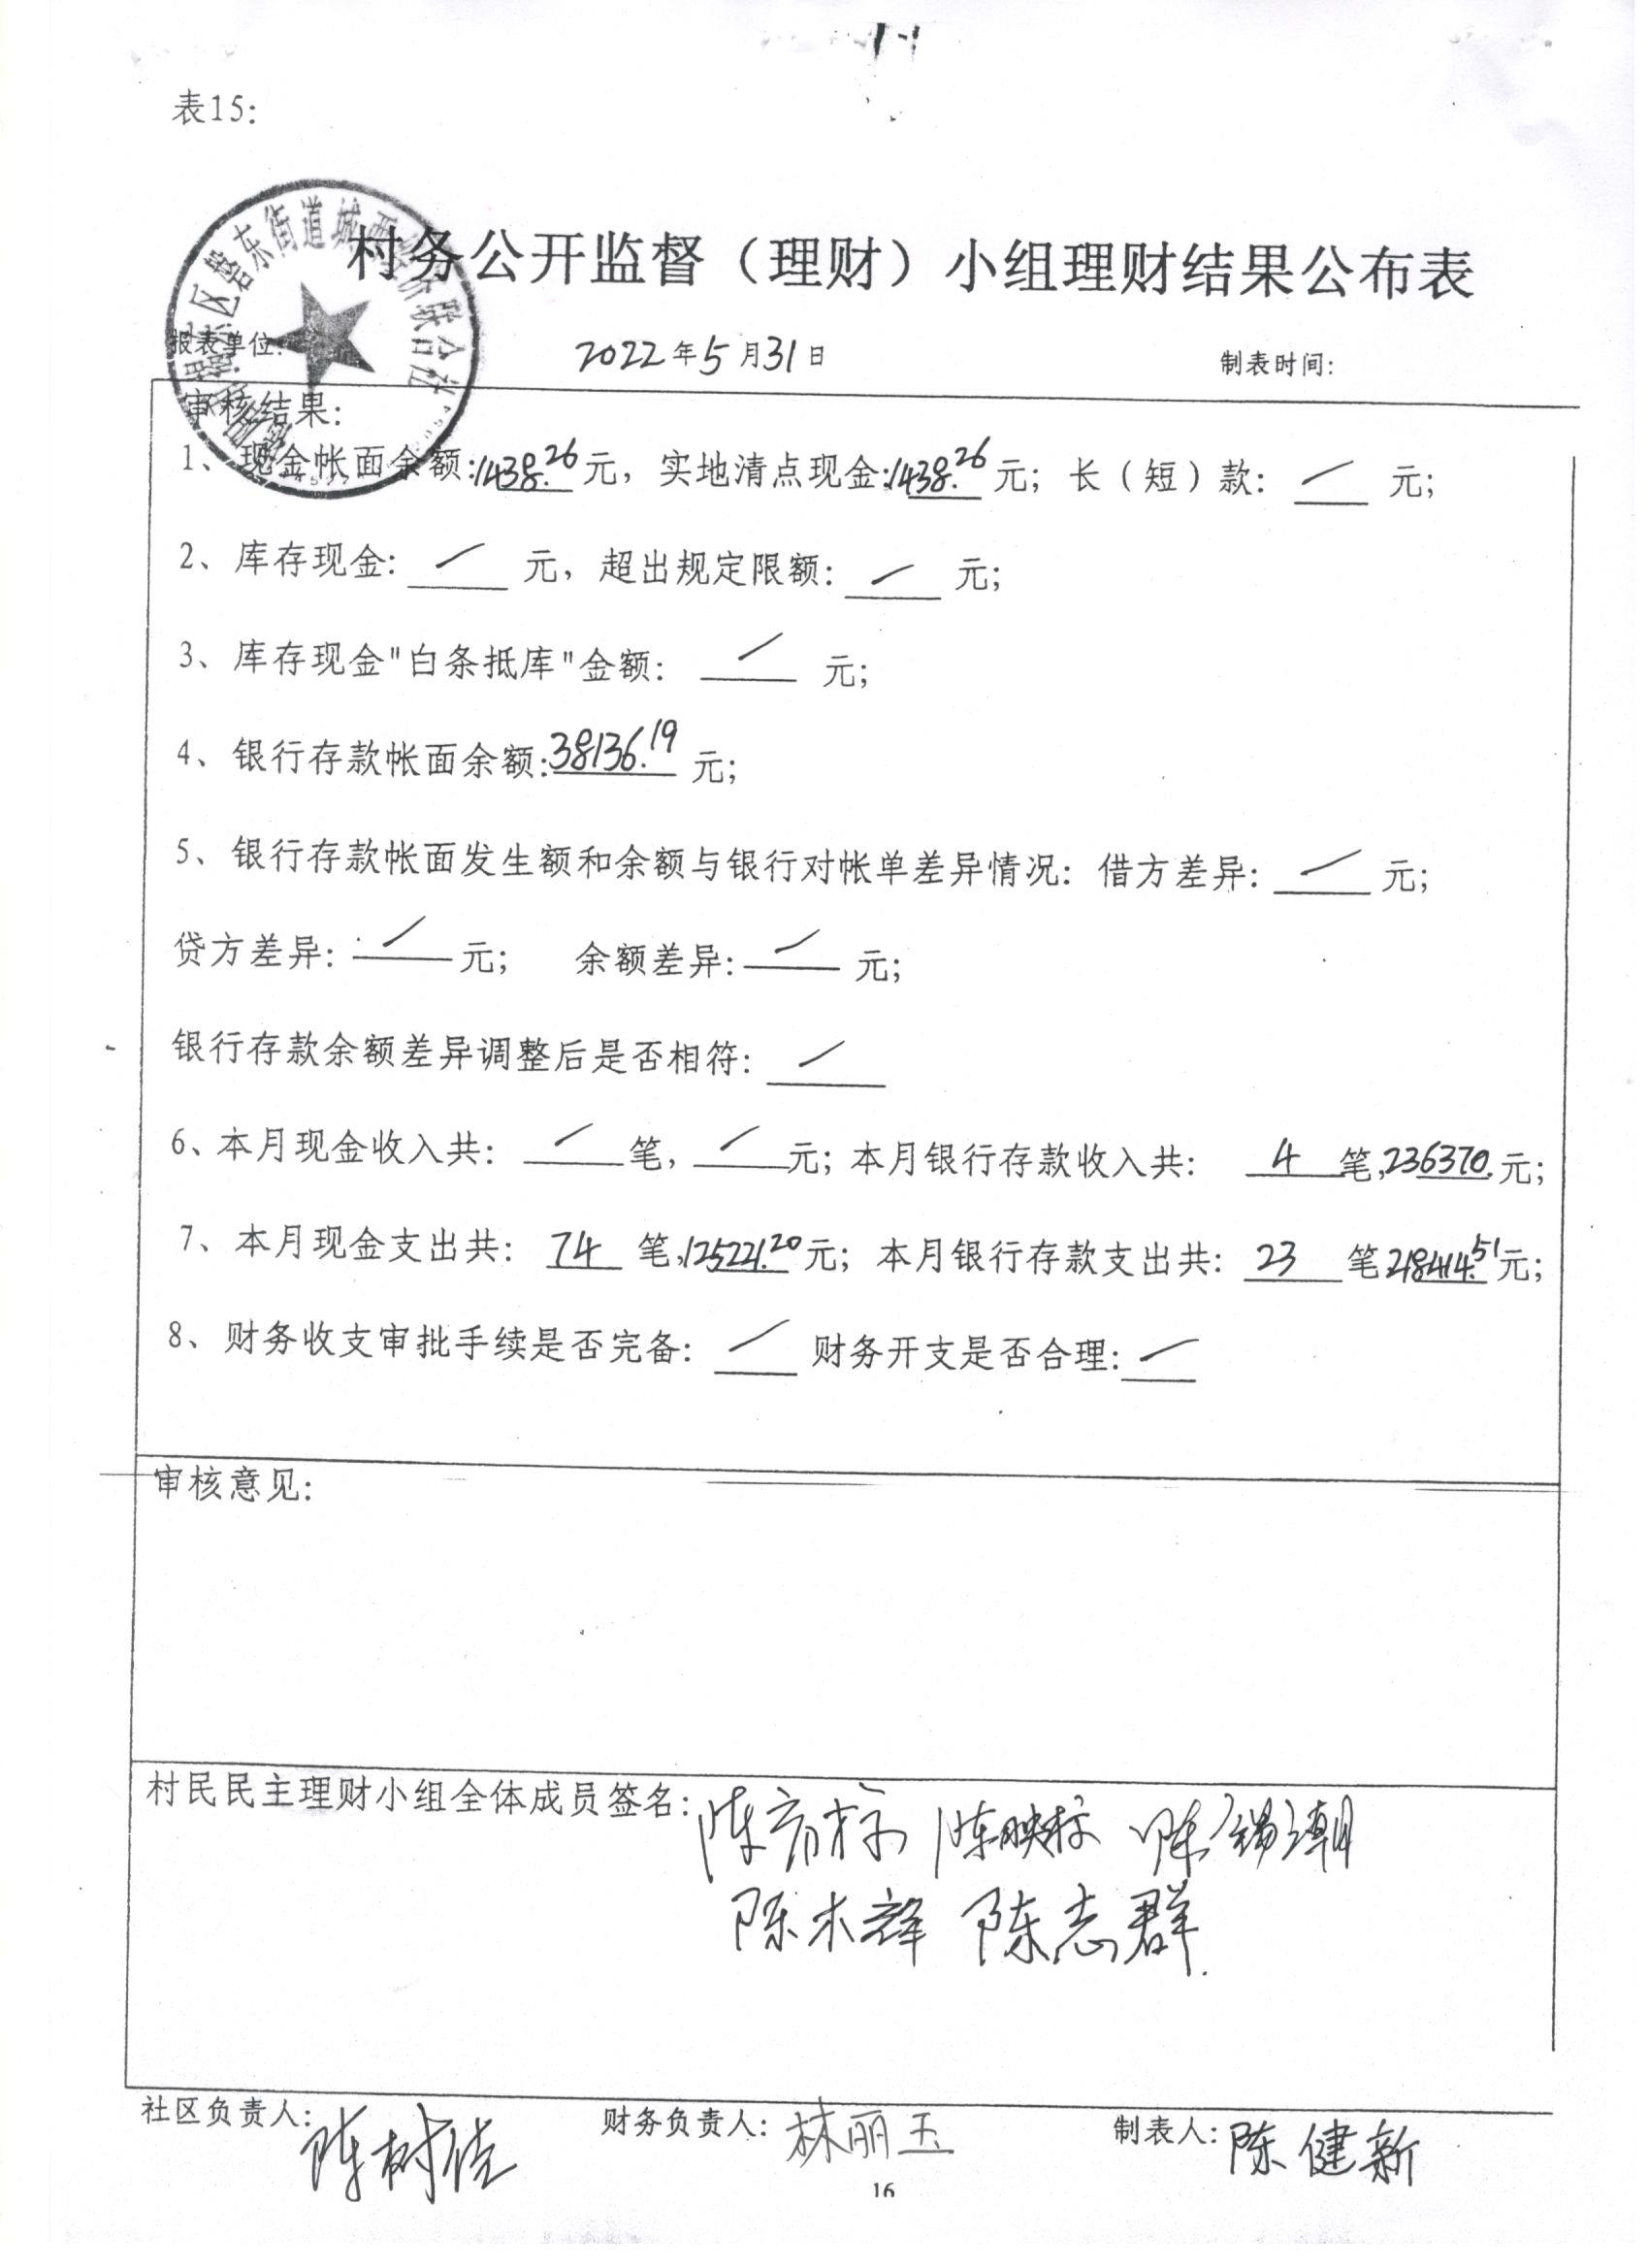 表15:
村务公开监督（理财）小组理财结果公布表
报表单位: 2022年5月31日 制表时间:
审核结果:
1、现金帐面余额:1438.26元，实地清点现金:1438.26元；长（短）款: / 元;
2、库存现金: / 元，超出规定限额: / 元;
3、库存现金"白条抵库"金额: / 元;
4、银行存款帐面余额:38136.19元;
5、银行存款帐面发生额和余额与银行对帐单差异情况: 借方差异: / 元;
贷方差异: / 元; 余额差异: / 元;
银行存款余额差异调整后是否相符: /
6、本月现金收入共: / 笔, / 元; 本月银行存款收入共: 4 笔,236370.元;
7、本月现金支出共: 74 笔,125221.20元; 本月银行存款支出共: 23 笔218414.51元;
8、财务收支审批手续是否完备: / 财务开支是否合理: /
审核意见:
村民民主理财小组全体成员签名: 陈 陈映标 陈锡潮
陈木锋 陈志群
社区负责人: 陈树 财务负责人: 林丽玉 制表人: 陈健新
16